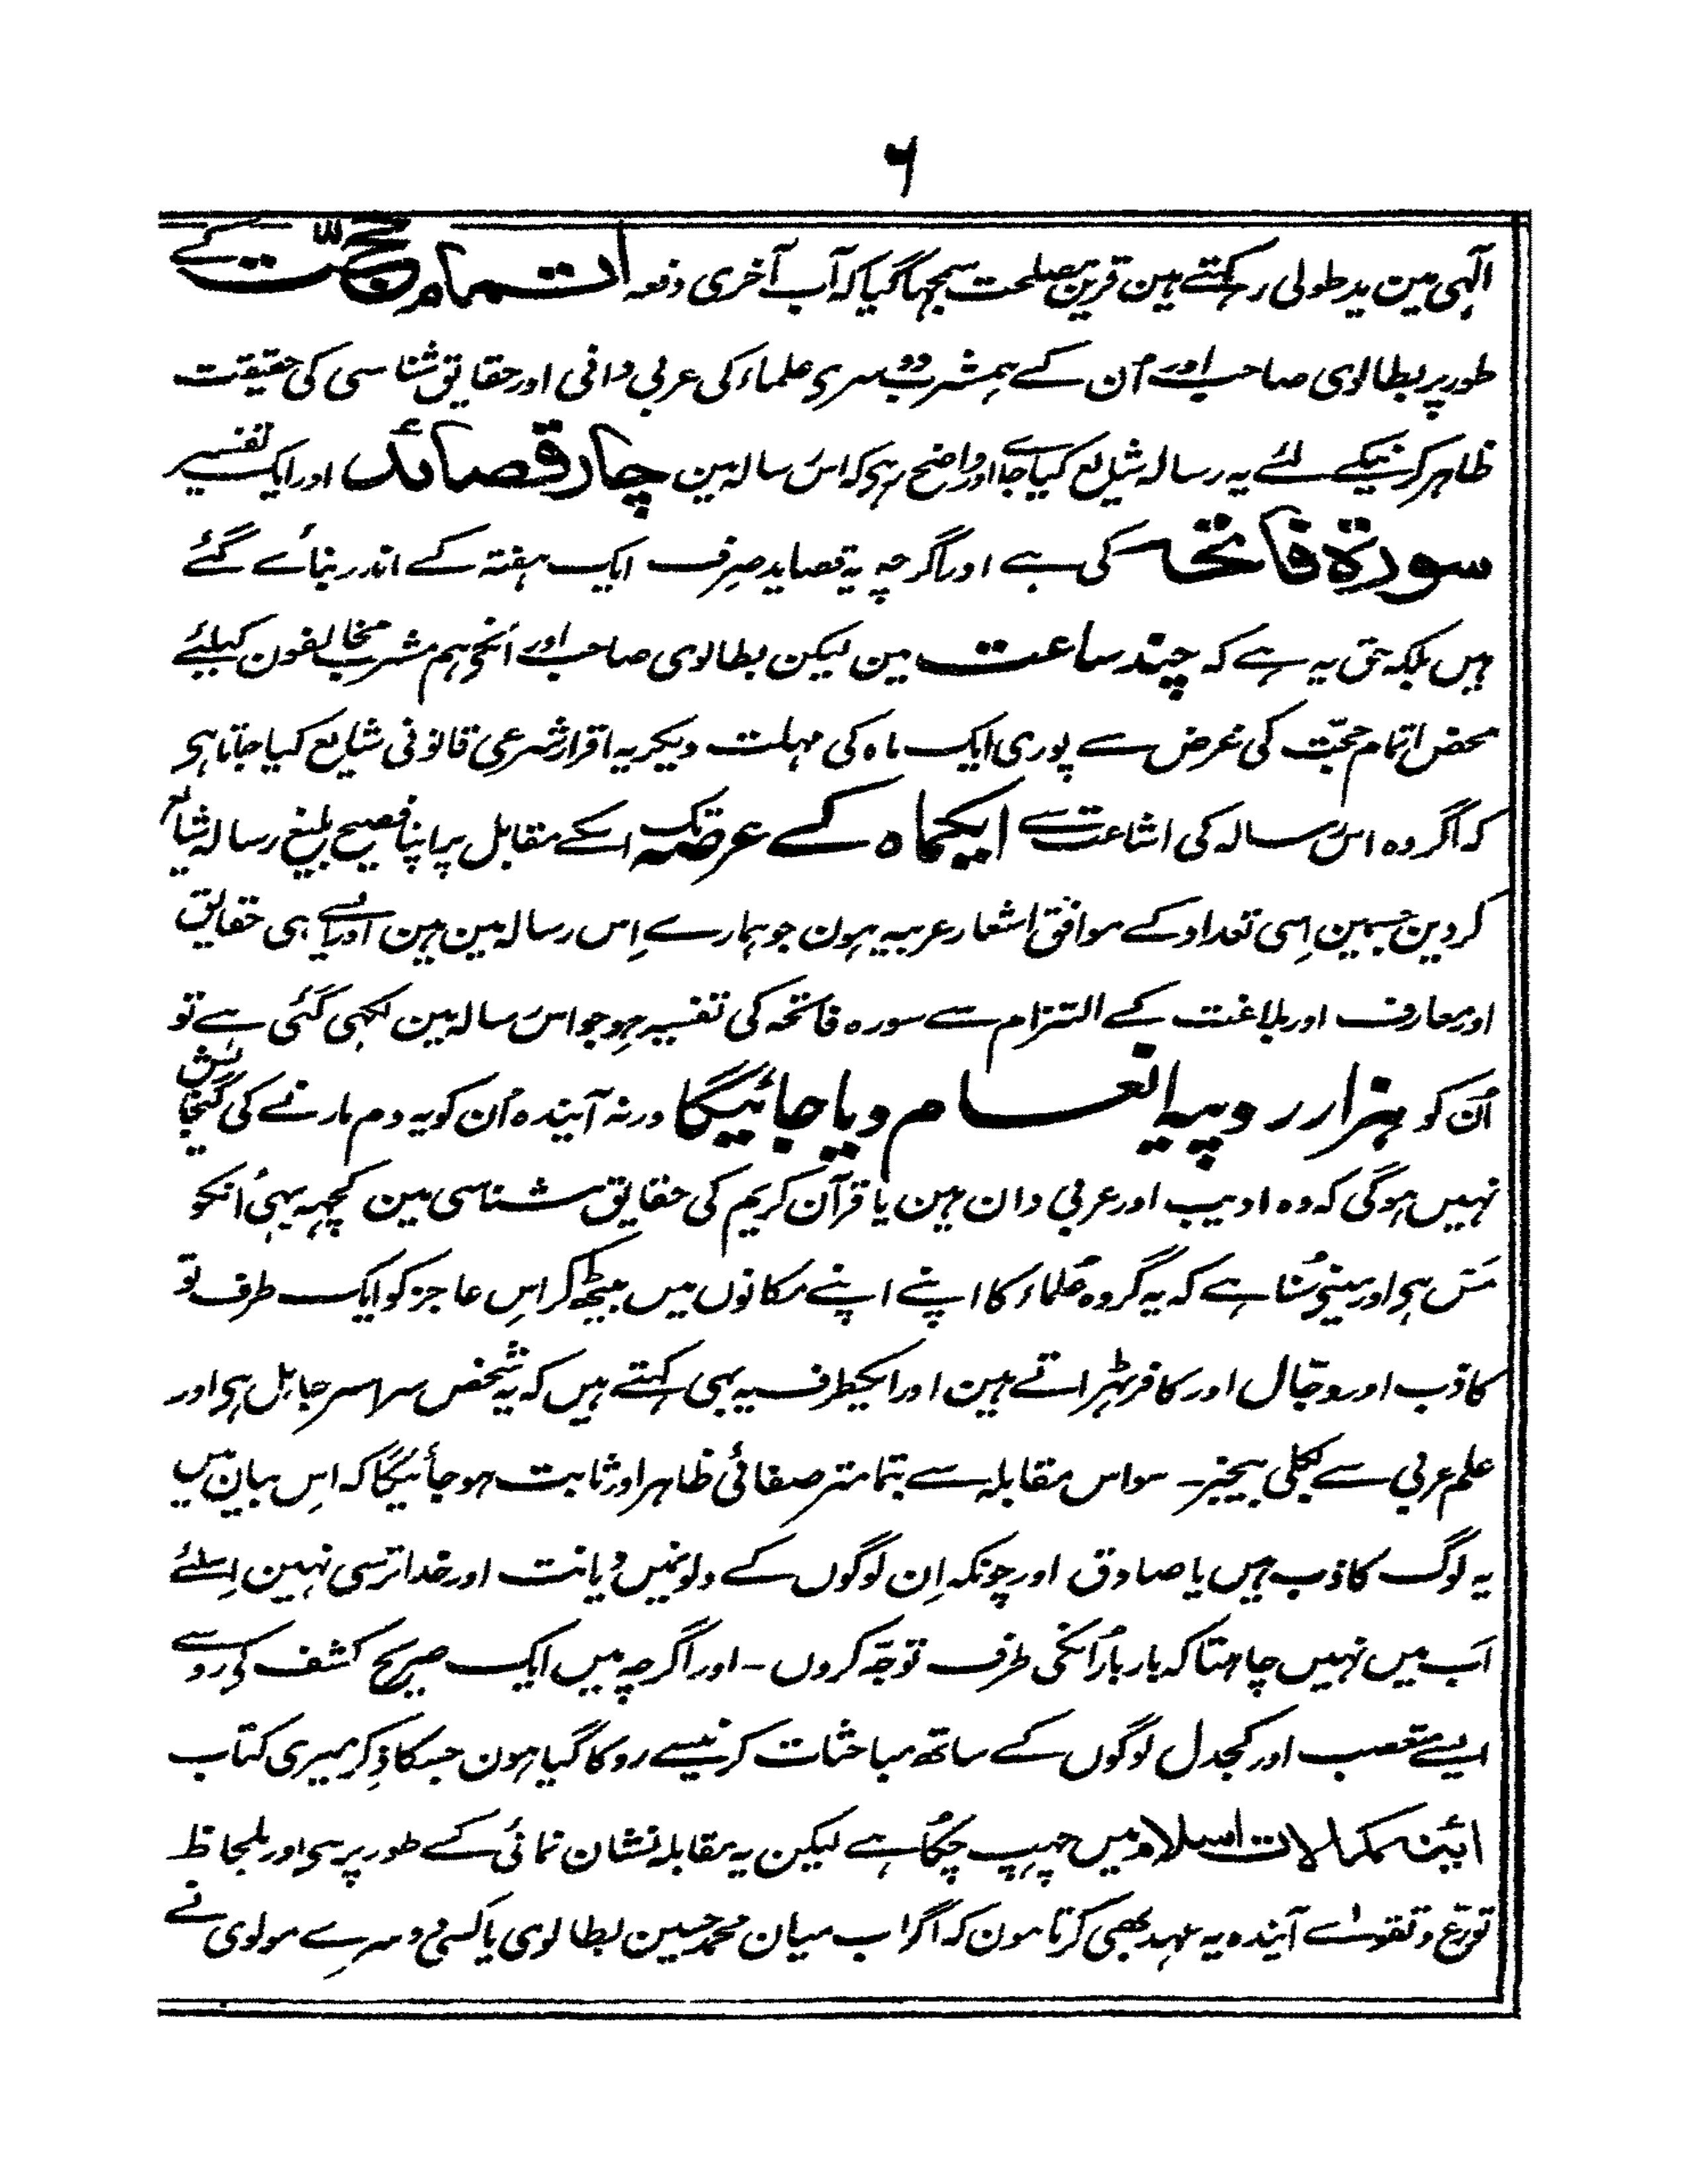 ۶
الٰہی مین ید طولیٰ رکہتے ہین قرین مصلحت سمجہا گیا کہ اب آخری دفعہ اتمام حجّت کے
طور پر بطالوی صاحب اور اُن کے ہمشرب دوسری علماء کی عربی دانی اور حقایق شناسی کی حقیقت
ظاہر کرنیکے لئے یہ رسالہ شایع کیا جاے اور واضح رہی کہ اس رسالہ مین چار قصائد اور ایک تفسیر
سورة فاتحہ کی ہے اور اگرچہ یہ قصاید صرف ایک ہفتہ کے اندر بنائے گئے
ہیں بلکہ حق یہ ہے کہ چند ساعت مین لیکن بطالوی صاحب اور اُنکی ہم مشرب مخالفون کیلئے
محض اتمام حجّت کی غرض سے پوری ایک ماہ کی مہلت دیکر یہ اقرار شرعی قانونی شایع کیا جاتا ہی
کہ اگر وہ اس رسالہ کی اشاعت سے ایکماہ کے عرصہ تک اسکے مقابل پر اپنا فصیح بلیغ رسالہ شایع
کردین جسمین اِسی تعداد کے موافق اشعار عربیہ ہون جو ہمارے اِس رسالہ مین ہین اور ایسے ہی حقایق
اور معارف اور بلاغت کے التزام سے سورہ فاتحہ کی تفسیر ہو جو اس رسالہ مین لکہی گئی ہے تو
اُن کو ہزار روپیہ انعام دیا جائیگا ورنہ آیندہ اُن کو یہ دم مارنے کی گنجایش
نہیں ہوگی کہ وہ ادیب اور عربی دان ہین یا قرآن کریم کی حقایق شناسی مین کچہہ بہی اُنکو
مَس ہی اور مینی سُنا ہے کہ یہ گروہ علماء کا اپنے اپنے مکانوں میں بیٹھ کر اس عاجز کو ایک طرف تو
کاذب اور دجّال اور کافر ٹہراتے ہین اور ایکطرف یہ بہی کہتے ہیں کہ یہ شخص سراسر جاہل ہی اور
علم عربی سے بکلی بیخبر۔ سو اس مقابلہ سے بتمامتر صفائی ظاہر اور ثابت ہوجائیگا کہ اِس بیان میں
یہ لوگ کاذب ہیں یا صادق اور چونکہ اِن لوگوں کے دلونمیں دیانت اور خدا ترسی نہین اِسلئے
اَب میں نہیں چاہتا کہ بار بار اُنکی طرف توجّہ کروں ۔ اور اگرچہ میں ایک صریح کشف کی رو سے
ایسے متعصب اور کجدل لوگوں کے ساتھ مباحثات کرنیسے روکا گیا ہون جسکا ذِکر میری کتاب
ائینہ کمالات اسلام میں چہپ چکا ہے لیکن یہ مقابلہ نشان نمائی کے طور پر ہی اور بلحاظ
تورّع و تقویٰ کے آیندہ یہ عہد بھی کرتا ہون کہ اگر اب میان محمد حسین بطالوی یا کسی دوسرے مولوی نے